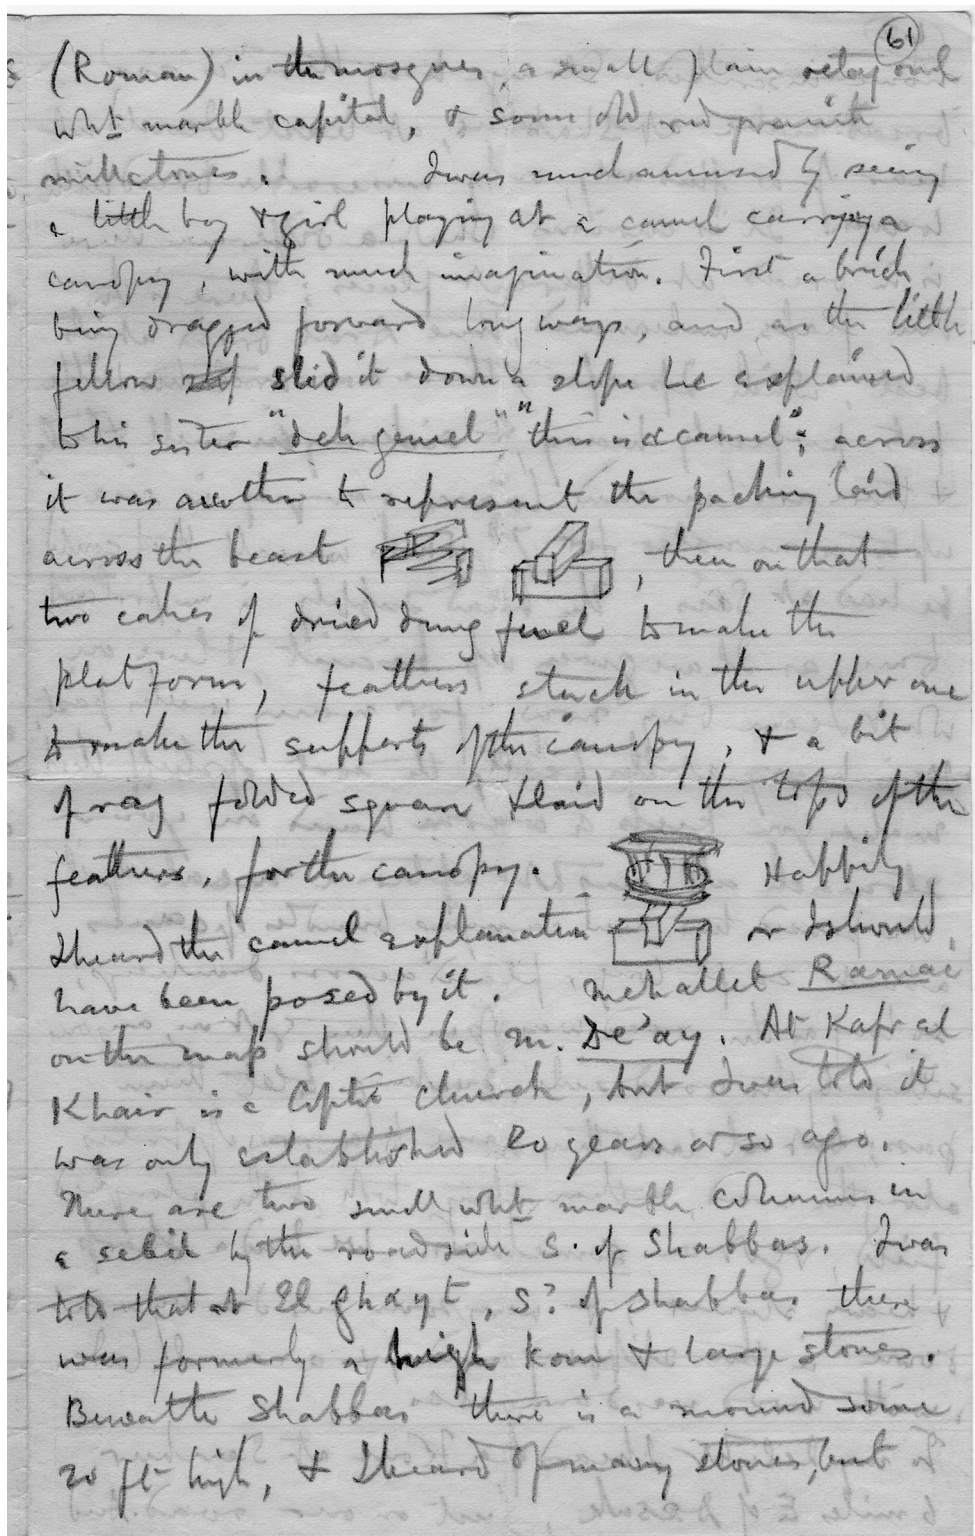 61
(Roman) in the mosques, a small plain octagonal
wht marble capital, & some old red granite
millstones. I was much amused by seeing
a little boy & girl playing at a camel carrying a
canopy, with much imagination. First a brick
being dragged forward longways, and, as the little
fellow slid it down a slope he explained
to his sister "deh gemel" "this is a camel"; across
it was another to represent the packing laid
across the beast , then on that
two cakes of dried dung fuel to make the
platform, feathers stuck in the upper one
to make the supports of the canopy, & a bit
of rag folded square & laid on the tops of the
feathers, for the canopy. Happily
I heard the camel explanation or I should
have been posed by it. Mehallet Ramae
on the map should be M. De'ay. At Kafr el
Khair is a Coptic church, but I was told it
was only established 20 years or so ago.
There are two small wht marble columns in
a sebil by the roadside S. of Shabbas. I was
told that at El Ghayt, S? of Shabbas there
was formerly a high kom & large stones.
Beneath Shabbas there is a mound some
20 ft high, & I heard of many stones, but